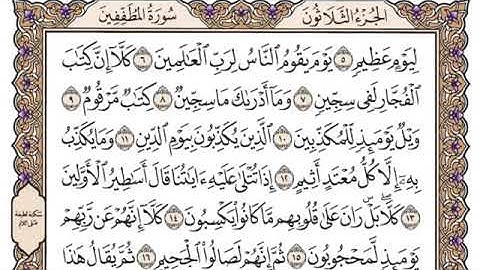 الجزء الثلاثون سورة المطففين
لِيَوْمٍ عَظِيمٍ ٥ يَوْمَ يَقُومُ ٱلنَّاسُ لِرَبِّ ٱلْعَٰلَمِينَ ٦ كَلَّآ إِنَّ كِتَٰبَ
ٱلْفُجَّارِ لَفِى سِجِّينٍ ٧ وَمَآ أَدْرَىٰكَ مَا سِجِّينٌ ٨ كِتَٰبٌ مَّرْقُومٌ ٩
وَيْلٌ يَوْمَئِذٍ لِّلْمُكَذِّبِينَ ١٠ ٱلَّذِينَ يُكَذِّبُونَ بِيَوْمِ ٱلدِّينِ ١١ وَمَا يُكَذِّبُ
بِهِۦٓ إِلَّا كُلُّ مُعْتَدٍ أَثِيمٍ ١٢ إِذَا تُتْلَىٰ عَلَيْهِ ءَايَٰتُنَا قَالَ أَسَٰطِيرُ ٱلْأَوَّلِينَ
١٣ كَلَّا ۖ بَلْ ۜ رَانَ عَلَىٰ قُلُوبِهِم مَّا كَانُوا۟ يَكْسِبُونَ ١٤ كَلَّآ إِنَّهُمْ عَن رَّبِّهِمْ
يَوْمَئِذٍ لَّمَحْجُوبُونَ ١٥ ثُمَّ إِنَّهُمْ لَصَالُوا۟ ٱلْجَحِيمِ ١٦ ثُمَّ يُقَالُ هَٰذَا